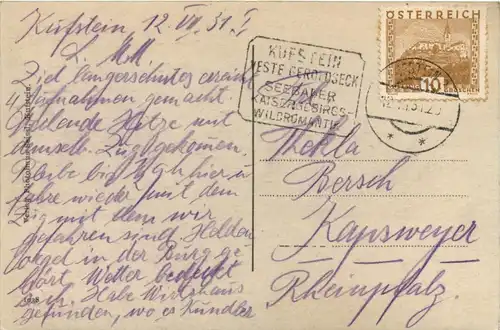 Kufstein 12. VII. 31.
L. M.!
Ziel langersehntes erreicht
4 Aufnahmen gemacht.
Hitze mit
demselb. Zug gekommen
bis 7 Uhr hier u
fahre wieder mit dem
Zug mit dem wir
gefahren sind. Helden
orgel in der Burg ge
hört. Wetter bedeckt
Habe Wirtshaus
gefunden, wo es Kundler
KUFSTEIN
VESTE GEROLDSECK
SEEBÄDER
KAISERGEBIRGS-
WILDROMANTIK
ÖSTERREICH
10
Thekla
Bersch
Kapsweyer
Rheinpfalz.